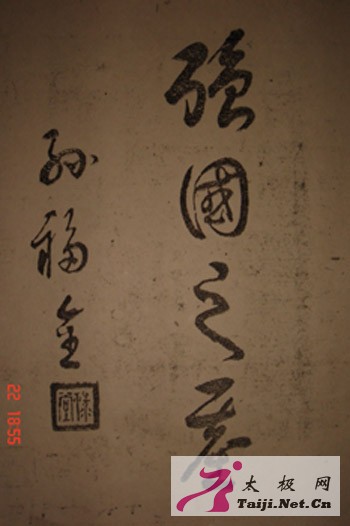 强國之基
孫福全
祿堂
22 18:55
太极网
Taiji.Net.Cn